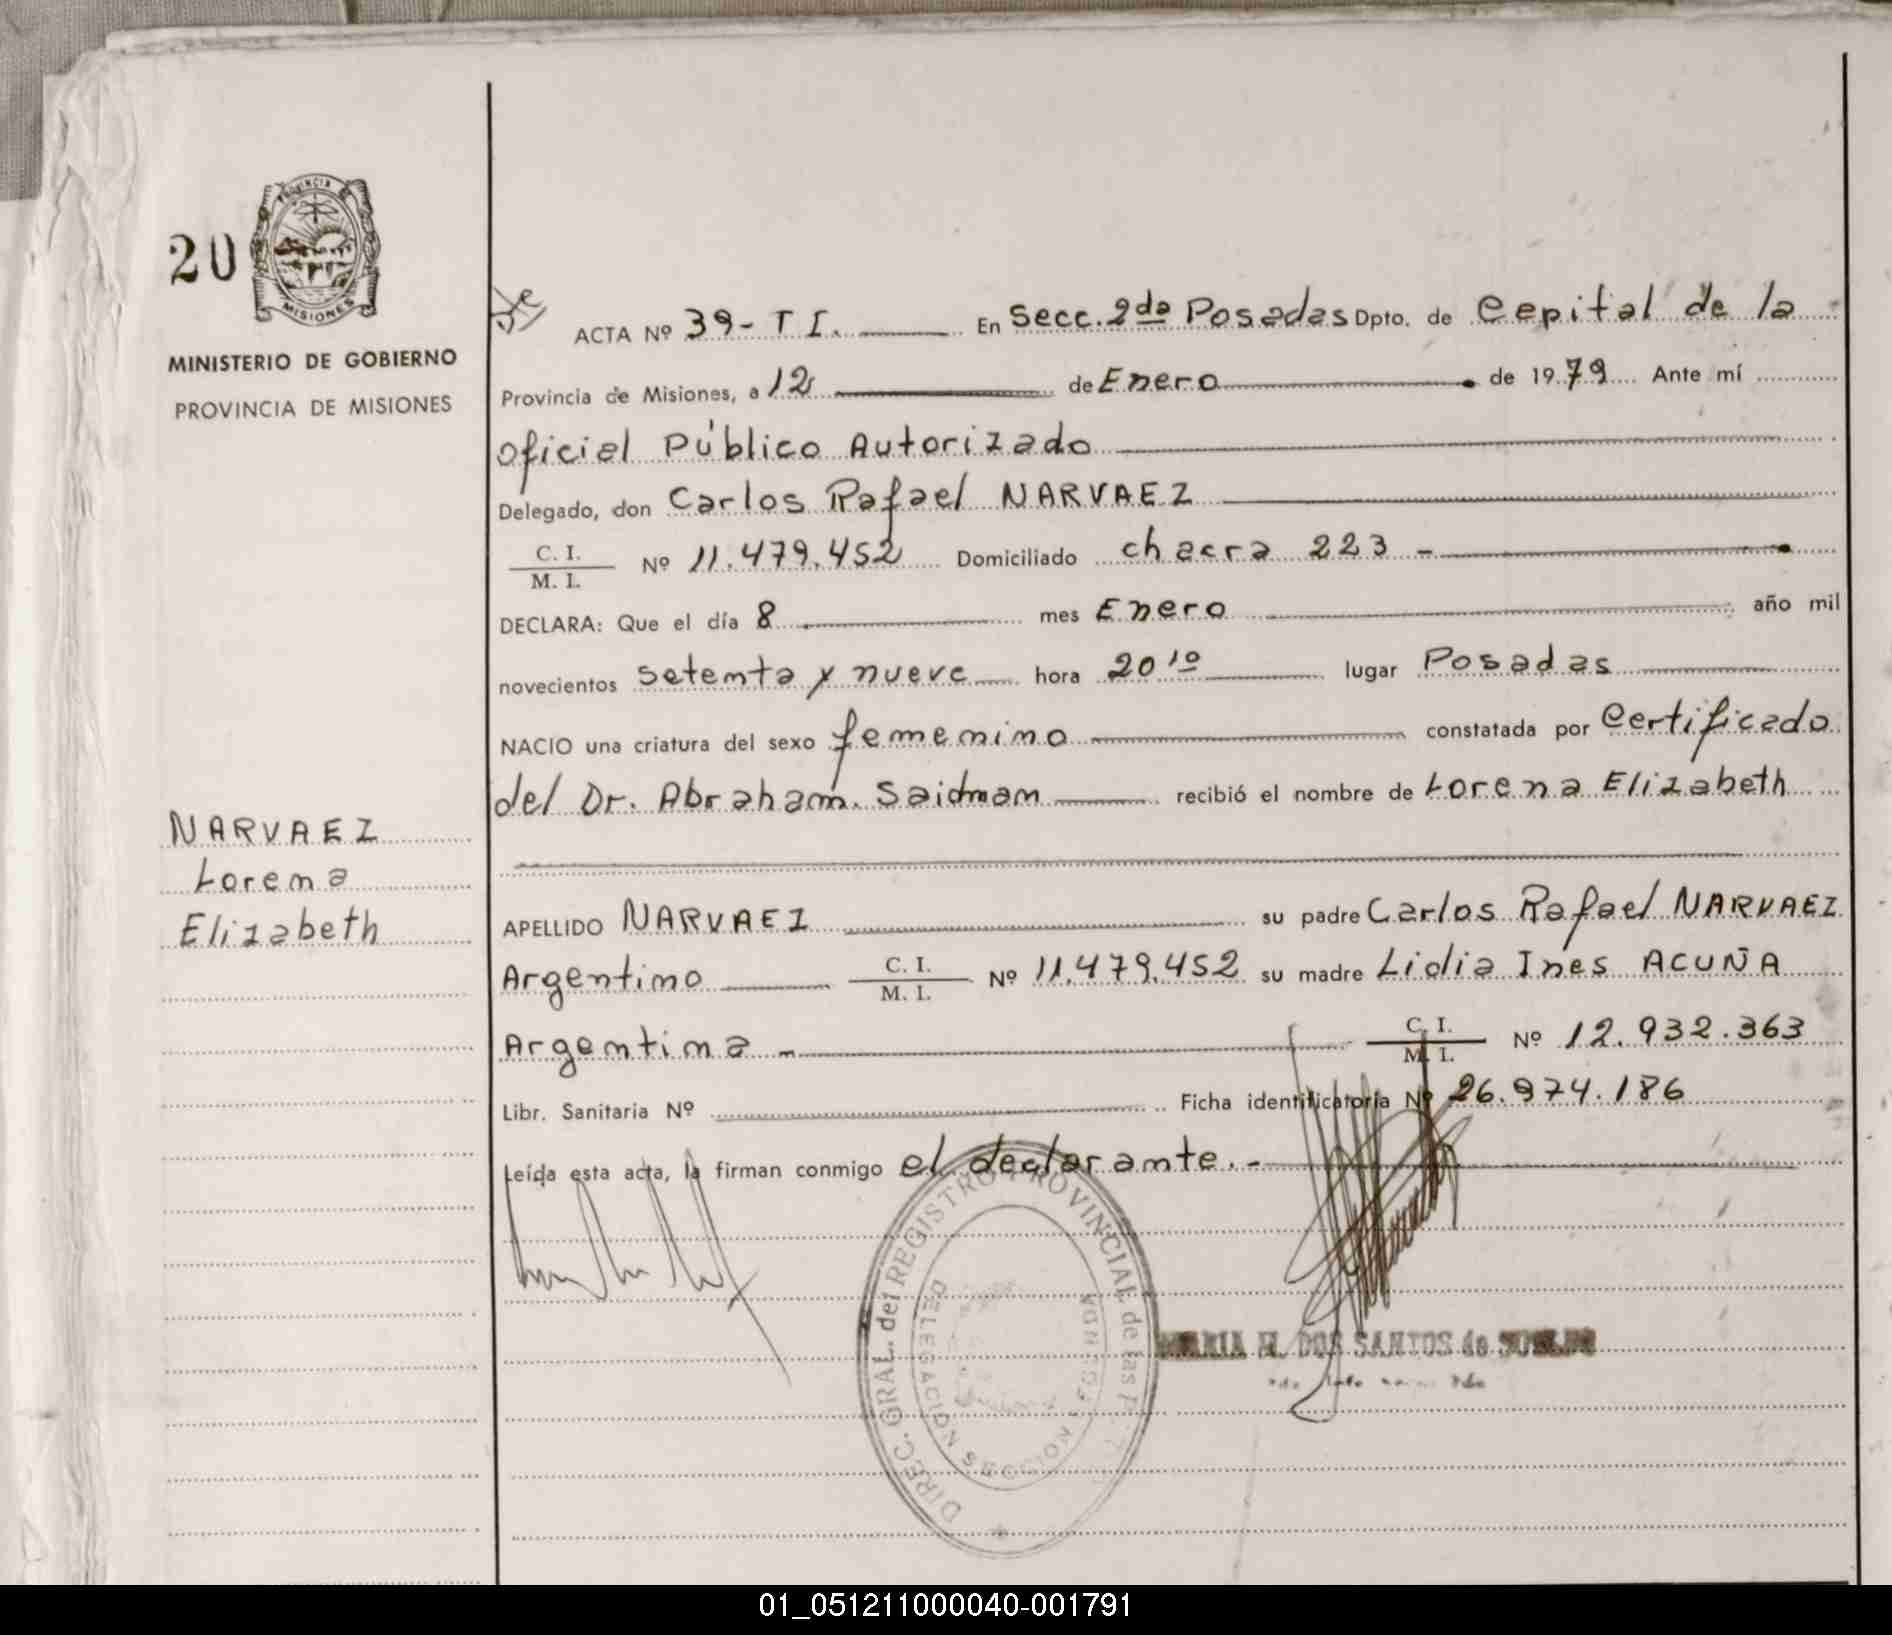 20
PROVINCIA DE
MISIONES
MINISTERIO DE GOBIERNO
PROVINCIA DE MISIONES
NARVAEZ
Lorena
Elizabeth
ACTA Nº 39- T I. En Secc. 2da Posadas Dpto. de Capital de la
Provincia de Misiones, a 12 de Enero de 1979 Ante mí
Oficial Público Autorizado
Delegado, don Carlos Rafael NARVAEZ
C. I.
M. I. Nº 11.479.452 Domiciliado chacra 223 -
DECLARA: Que el día 8 mes Enero año mil
novecientos setenta y nueve hora 20 10 lugar Posadas
NACIO una criatura del sexo femenino constatada por Certificado
del Dr. Abraham. Saidman recibió el nombre de Lorena Elizabeth
APELLIDO NARVAEZ su padre Carlos Rafael NARVAEZ
Argentino C. I.
M. I. Nº 11.479.452 su madre Lidia Ines ACUÑA
Argentina - C. I.
M. I. Nº 12.932.363
Libr. Sanitaria Nº Ficha identificatoria Nº 26.974.186
Leída esta acta, la firman conmigo el declarante. -
DIREC. GRAL. del REGISTRO PROVINCIAL de las
DELEGACION SECCION SEGUNDA
MARIA H. DOS SANTOS de
01_051211000040-001791